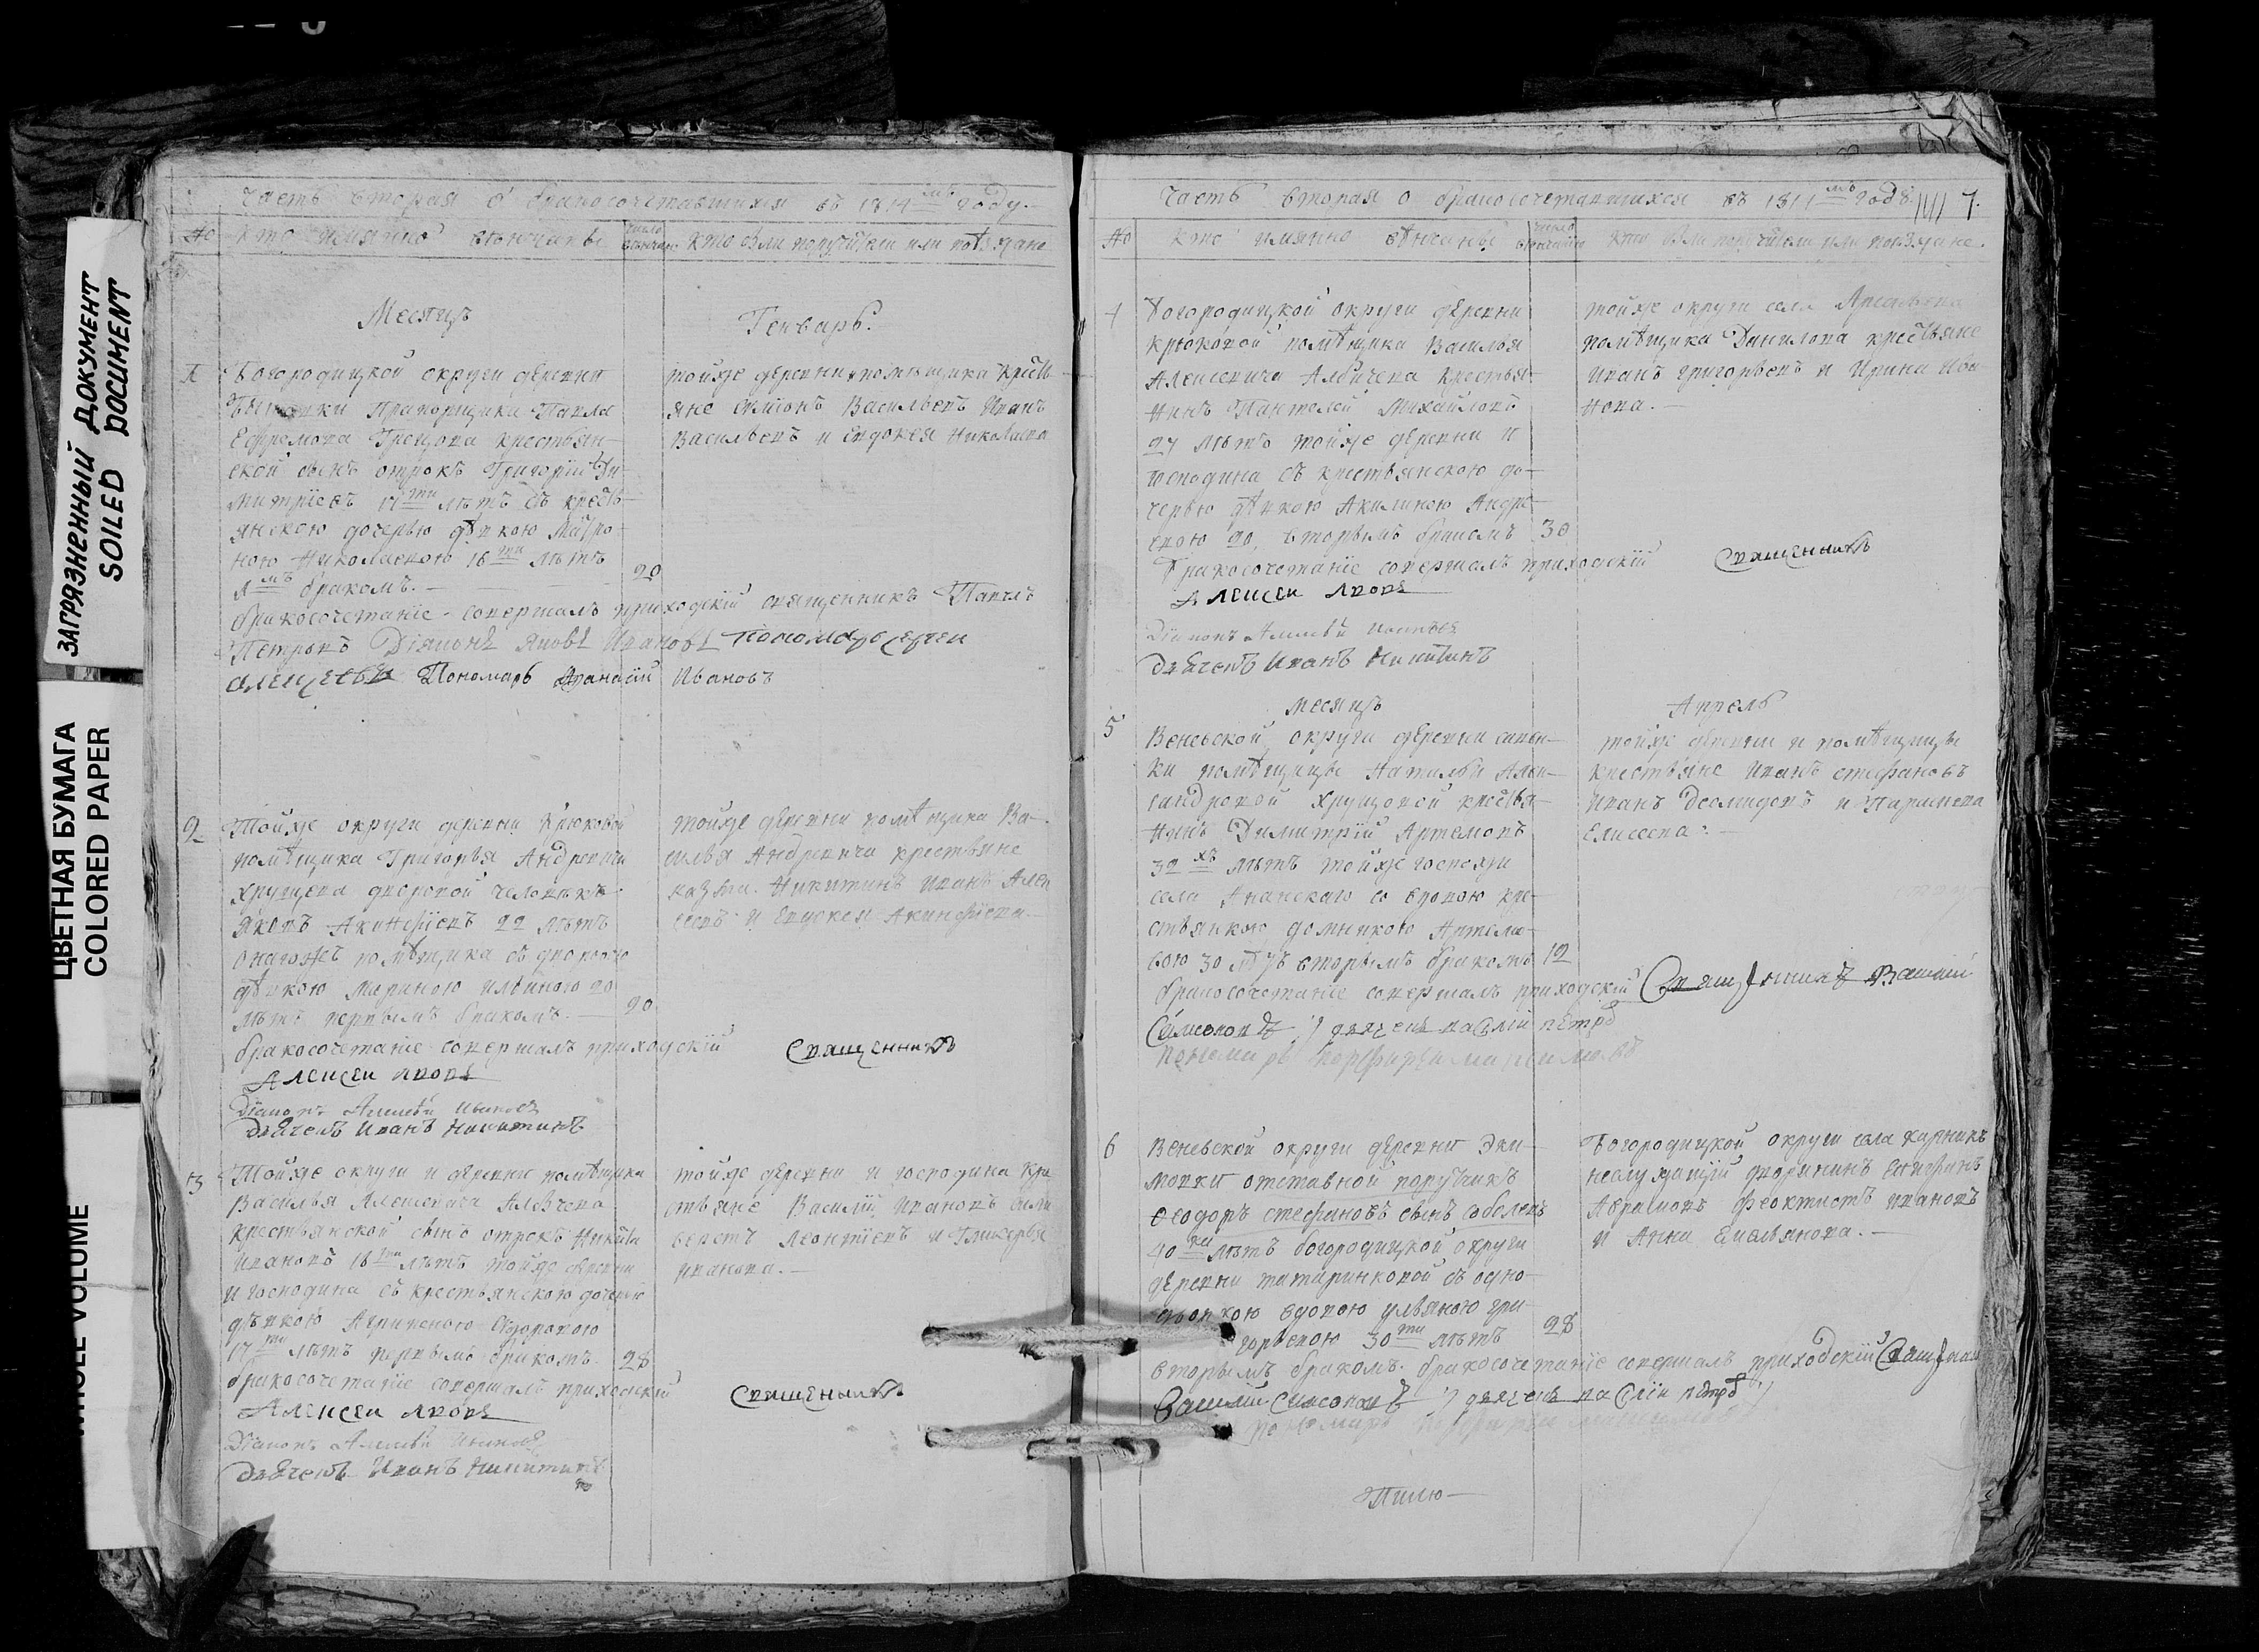 ЗАГРЯЗНЕННЫЙ ДОКУМЕНТ
SOILED DOCUMENT
ЦВЕТНАЯ БУМАГА
COLORED PAPER
WHOLE VOLUME
Часть вторая о бракосочетавшихся въ 1814мъ году.
№ кто имянно венчаны число венчания кто были поручители или поѣзжане
Месяцъ Генварь.
1 Богородицкой округи деревни
Прапорщика Павла
Ефремова крестьян-
ской сынъ отрокъ Григорiй Ди-
митрiевъ 17ти лѣтъ съ кресть-
янскою дочерью дѣвкою Матро-
ною Николаевою 16ти лѣтъ
1мъ бракомъ.- 20
тойже деревни и помѣщика кресть-
яне Симионъ Васильевъ Иванъ
Васильевъ и Евдокея Николаева
бракосочетанiе совершалъ приходскiй священникъ Павелъ
Петровъ Дiяконъ Яковъ Ивановъ Пономарь Сергеи
Алексеевъ Пономарь Афанасiй Ивановъ
2 Тойже округи деревни Крюковой
помѣщика Григорья Андревича
Хрущева дворовой человѣкъ
Яковъ Акинфiевъ 22 лѣтъ
онагожъ помѣщика съ дворовою
дѣвкою Мариною Ильиною 20
лѣтъ первымъ бракомъ.- 20
тойже деревни помѣщика Ва-
силья Андревича крестьяне
Казма Никитинъ Иванъ Алек
сеевъ и Евдокея Акинфiева.-
бракосочетанiе совершалъ приходскiй Священникъ
Алексеи Яковъ
Дiаконъ Алексѣй
Дьячекъ Иванъ Никитинъ
3 Тойже округи и деревни помѣщика
Василья Алексеевича
крестьянской сынъ отрокъ Никита
Ивановъ 18ти лѣтъ тойже деревни
и господина съ крестьянскою дочерью
дѣвкою Ѳедоровою
17ти лѣтъ первымъ бракомъ. 28
тойже деревни и господина кре
стьяне Василiй Ивановъ Сили
верстъ Леонтiевъ и Гликерья
Иванова.-
бракосочетанiе совершалъ приходскiй Священникъ
Алексеи Яковъ
Дiаконъ Алексѣй
Дьячекъ Иванъ Никитинъ
Часть вторая о бракосочетавшихся въ 1814мъ годѣ. 7.
№ кто имянно вѣнчаны число венчания кто были поручители или поѣзжане.
4 Богородицкой округи деревни
Крюковой помѣщика Василья
Алексеевича крестья-
нинъ Пантелей Михайловъ
27 лѣтъ тойже деревни и
господина съ крестьянскою до-
черью дѣвкою Акилиною Андре-
евою 20, вторымъ бракомъ 30
тойже округи села
помѣщика Данилова крестьяне
Иванъ Григорьевъ и Ирина Ива
нова.-
Бракосочетанiе совершалъ приходскiй Священникъ
Алексеи Яковъ
Дiаконъ Алексѣй
Дьячекъ Иванъ Никитинъ
месяцъ Апрель
5 Веневской округи деревни
ки помѣщицы Натальи Алек-
сандровой Хрущовой крестья-
нинъ Димитрiй Артемовъ
32хъ лѣтъ тойже госпожи
села со вдовою кре-
стьянкою Домникою
вою 30 лѣтъ вторымъ бракомъ 12
тойже деревни и помѣщицы
крестьяне Иванъ Стефановъ
Иванъ и Парасковья
Елисеева.-
бракосочетанiе совершалъ приходскiй Священникъ Василiй
Симеоновъ дьячекъ Василiй Петровъ
Пономарь
6 Веневской округи деревни Эки-
мовки отставной порутчикъ
Ѳеодоръ Стефановъ сынъ Соболевъ
40ка лѣтъ богородицкой округи
деревни татаринковой съ одно-
дворкою вдовою Ульяною Гри-
горьевою 30ти лѣтъ 28
Богородицкой округи села
неслужащiй дворянинъ
Абрамовъ Феоктистъ Ивановъ
и Анна Емельянова.-
вторымъ бракомъ. бракосочетанiе совершалъ приходскiй Священникъ
Василiй Симеоновъ дьячекъ Василiй Петровъ
Пономарь